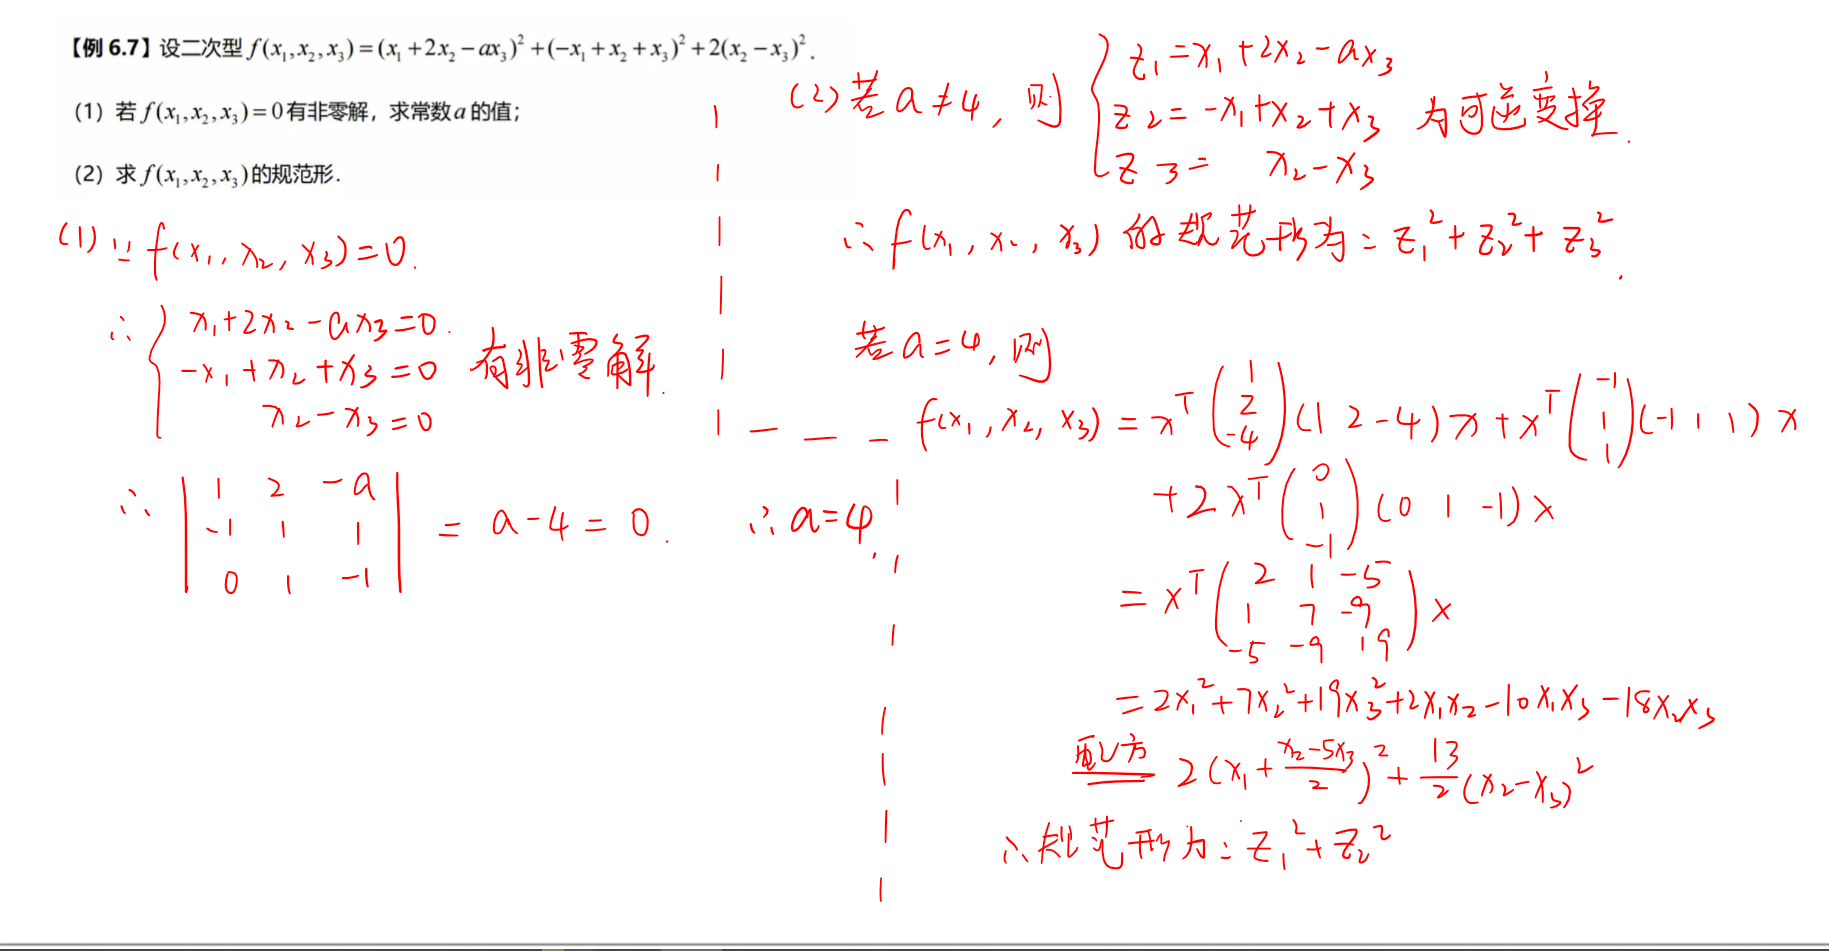 【例 6.7】设二次型 f(x₁,x₂,x₃)=(x₁+2x₂-ax₃)²+(-x₁+x₂+x₃)²+2(x₂-x₃)².
(1) 若 f(x₁,x₂,x₃)=0 有非零解，求常数 a 的值；
(2) 求 f(x₁,x₂,x₃) 的规范形.
(1) ∵ f(x₁,x₂,x₃)=0.
∴ { x₁+2x₂-ax₃=0.
-x₁+x₂+x₃=0 有非零解.
x₂-x₃=0
∴ | 1 2 -a |
| -1 1 1 | = a-4=0. ∴ a=4.
| 0 1 -1 |
(2) 若 a≠4, 则 { z₁=x₁+2x₂-ax₃
z₂=-x₁+x₂+x₃ 为可逆变换.
z₃= x₂-x₃
∴ f(x₁,x₂,x₃) 的规范形为: z₁²+z₂²+z₃².
若 a=4, 则
f(x₁,x₂,x₃) = xᵀ(1 2 -4)(1 2 -4)x+xᵀ(-1 1 1)(-1 1 1)x
+2xᵀ(0 1 -1)(0 1 -1)x
= xᵀ( 2 1 -5
1 7 -9
-5 -9 19 )x
=2x₁²+7x₂²+19x₃²+2x₁x₂-10x₁x₃-18x₂x₃
配方 2(x₁+(x₂-5x₃)/2)²+13/2(x₂-x₃)²
∴ 规范形为: z₁²+z₂²